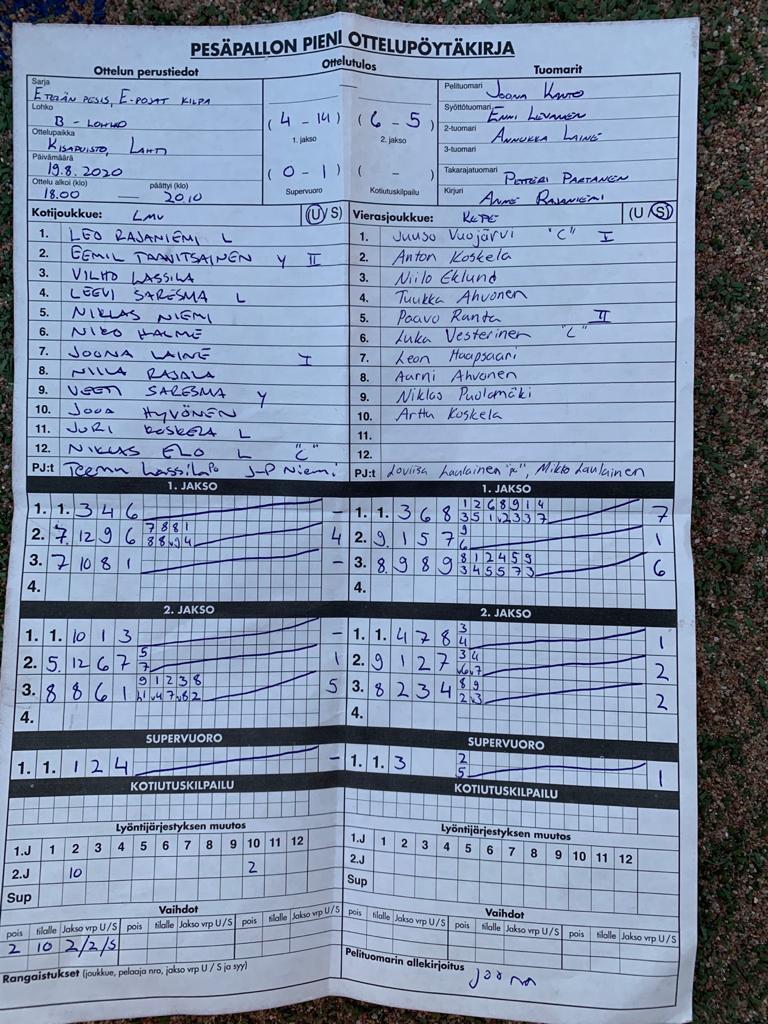 PESÄPALLON PIENI OTTELUPÖYTÄKIRJA
Ottelun perustiedot
Ottelutulos
Tuomarit
Sarja
ETELÄN PESIS, E-POJAT KILPA
Lohko
B - LOHKO
Ottelupaikka
KISAPUISTO, LAHTI
Päivämäärä
19.8.2020
Ottelu alkoi (klo) päättyi (klo)
18.00 — 20.10
( 4 - 14 ) ( 6 - 5 )
1. jakso 2. jakso
( 0 - 1 ) ( - )
Supervuoro Kotiutuskilpailu
Pelituomari JOONA KANTO
Syöttötuomari ENNI LEVANEN
2-tuomari ANNUKKA LAINE
3-tuomari
Takarajatuomari PETTERI PARTANEN
Kirjuri ANNE RAJANIEMI
Kotijoukkue: LMV (U/S)
1. LEO RAJANIEMI L
2. EEMIL TAANITSAINEN Y II
3. VILHO LASSILA
4. LEEVI SARESMA L
5. NIKLAS NIEMI
6. NIKO HALME
7. JOONA LAINE I
8. NIILA RAJALA
9. VEETI SARESMA Y
10. JOOA HYVÖNEN
11. JURI KOSKELA L
12. NIKLAS ELO L "C"
PJ:t Teemu Lassila J-P Niemi
Vierasjoukkue: KEPE (U/S)
1. Juuso Vuojärvi "C" I
2. Anton Koskela
3. Niilo Eklund
4. Tuukka Ahvonen
5. Paavo Ranta II
6. Luka Vesterinen "L"
7. Leon Haapsaari
8. Aarni Ahvonen
9. Niklas Puolamäki
10. Arttu Koskela
11.
12.
PJ:t Loviisa Laulainen "P", Mikko Laulainen
1. JAKSO
1. 1. 3 4 6 -
2. 7. 12 9 6 7 8 8 1 4
3. 7 10 8 1 -
4.
1. JAKSO
1. 1. 3 6 8 1 2 6 8 9 1 4 7
2. 9. 1 5 7 9 6 1
3. 8. 9 8 9 8 1 2 4 5 9 6
3 4 5 5 7 3
4.
2. JAKSO
1. 1. 10 1 3 -
2. 5. 12 6 7 5 7 1
3. 8 8 6 1 9 1 2 3 8 5
4.
2. JAKSO
1. 1. 4 7 8 3 4 1
2. 9 1 2 7 3 4 2
3. 8 2 3 4 8 9 2
4.
SUPERVUORO
1. 1. 1 2 4 -
SUPERVUORO
1. 1. 3 2 5 1
KOTIUTUSKILPAILU
KOTIUTUSKILPAILU
Lyöntijärjestyksen muutos
1.J 1 2 3 4 5 6 7 8 9 10 11 12
2.J 10 2
Sup
Lyöntijärjestyksen muutos
1.J 1 2 3 4 5 6 7 8 9 10 11 12
2.J
Sup
Vaihdot
pois tilalle Jakso vrp U/S pois tilalle Jakso vrp U/S pois tilalle Jakso vrp U/S
2 10 2/2/S
Vaihdot
pois tilalle Jakso vrp U/S pois tilalle Jakso vrp U/S pois tilalle Jakso vrp U/S
Rangaistukset (joukkue, pelaaja nro, jakso vrp U/S ja syy)
Pelituomarin allekirjoitus